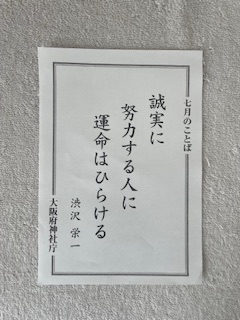 七月のことば
誠実に
努力する人に
運命はひらける
渋沢 栄一
大阪府神社庁